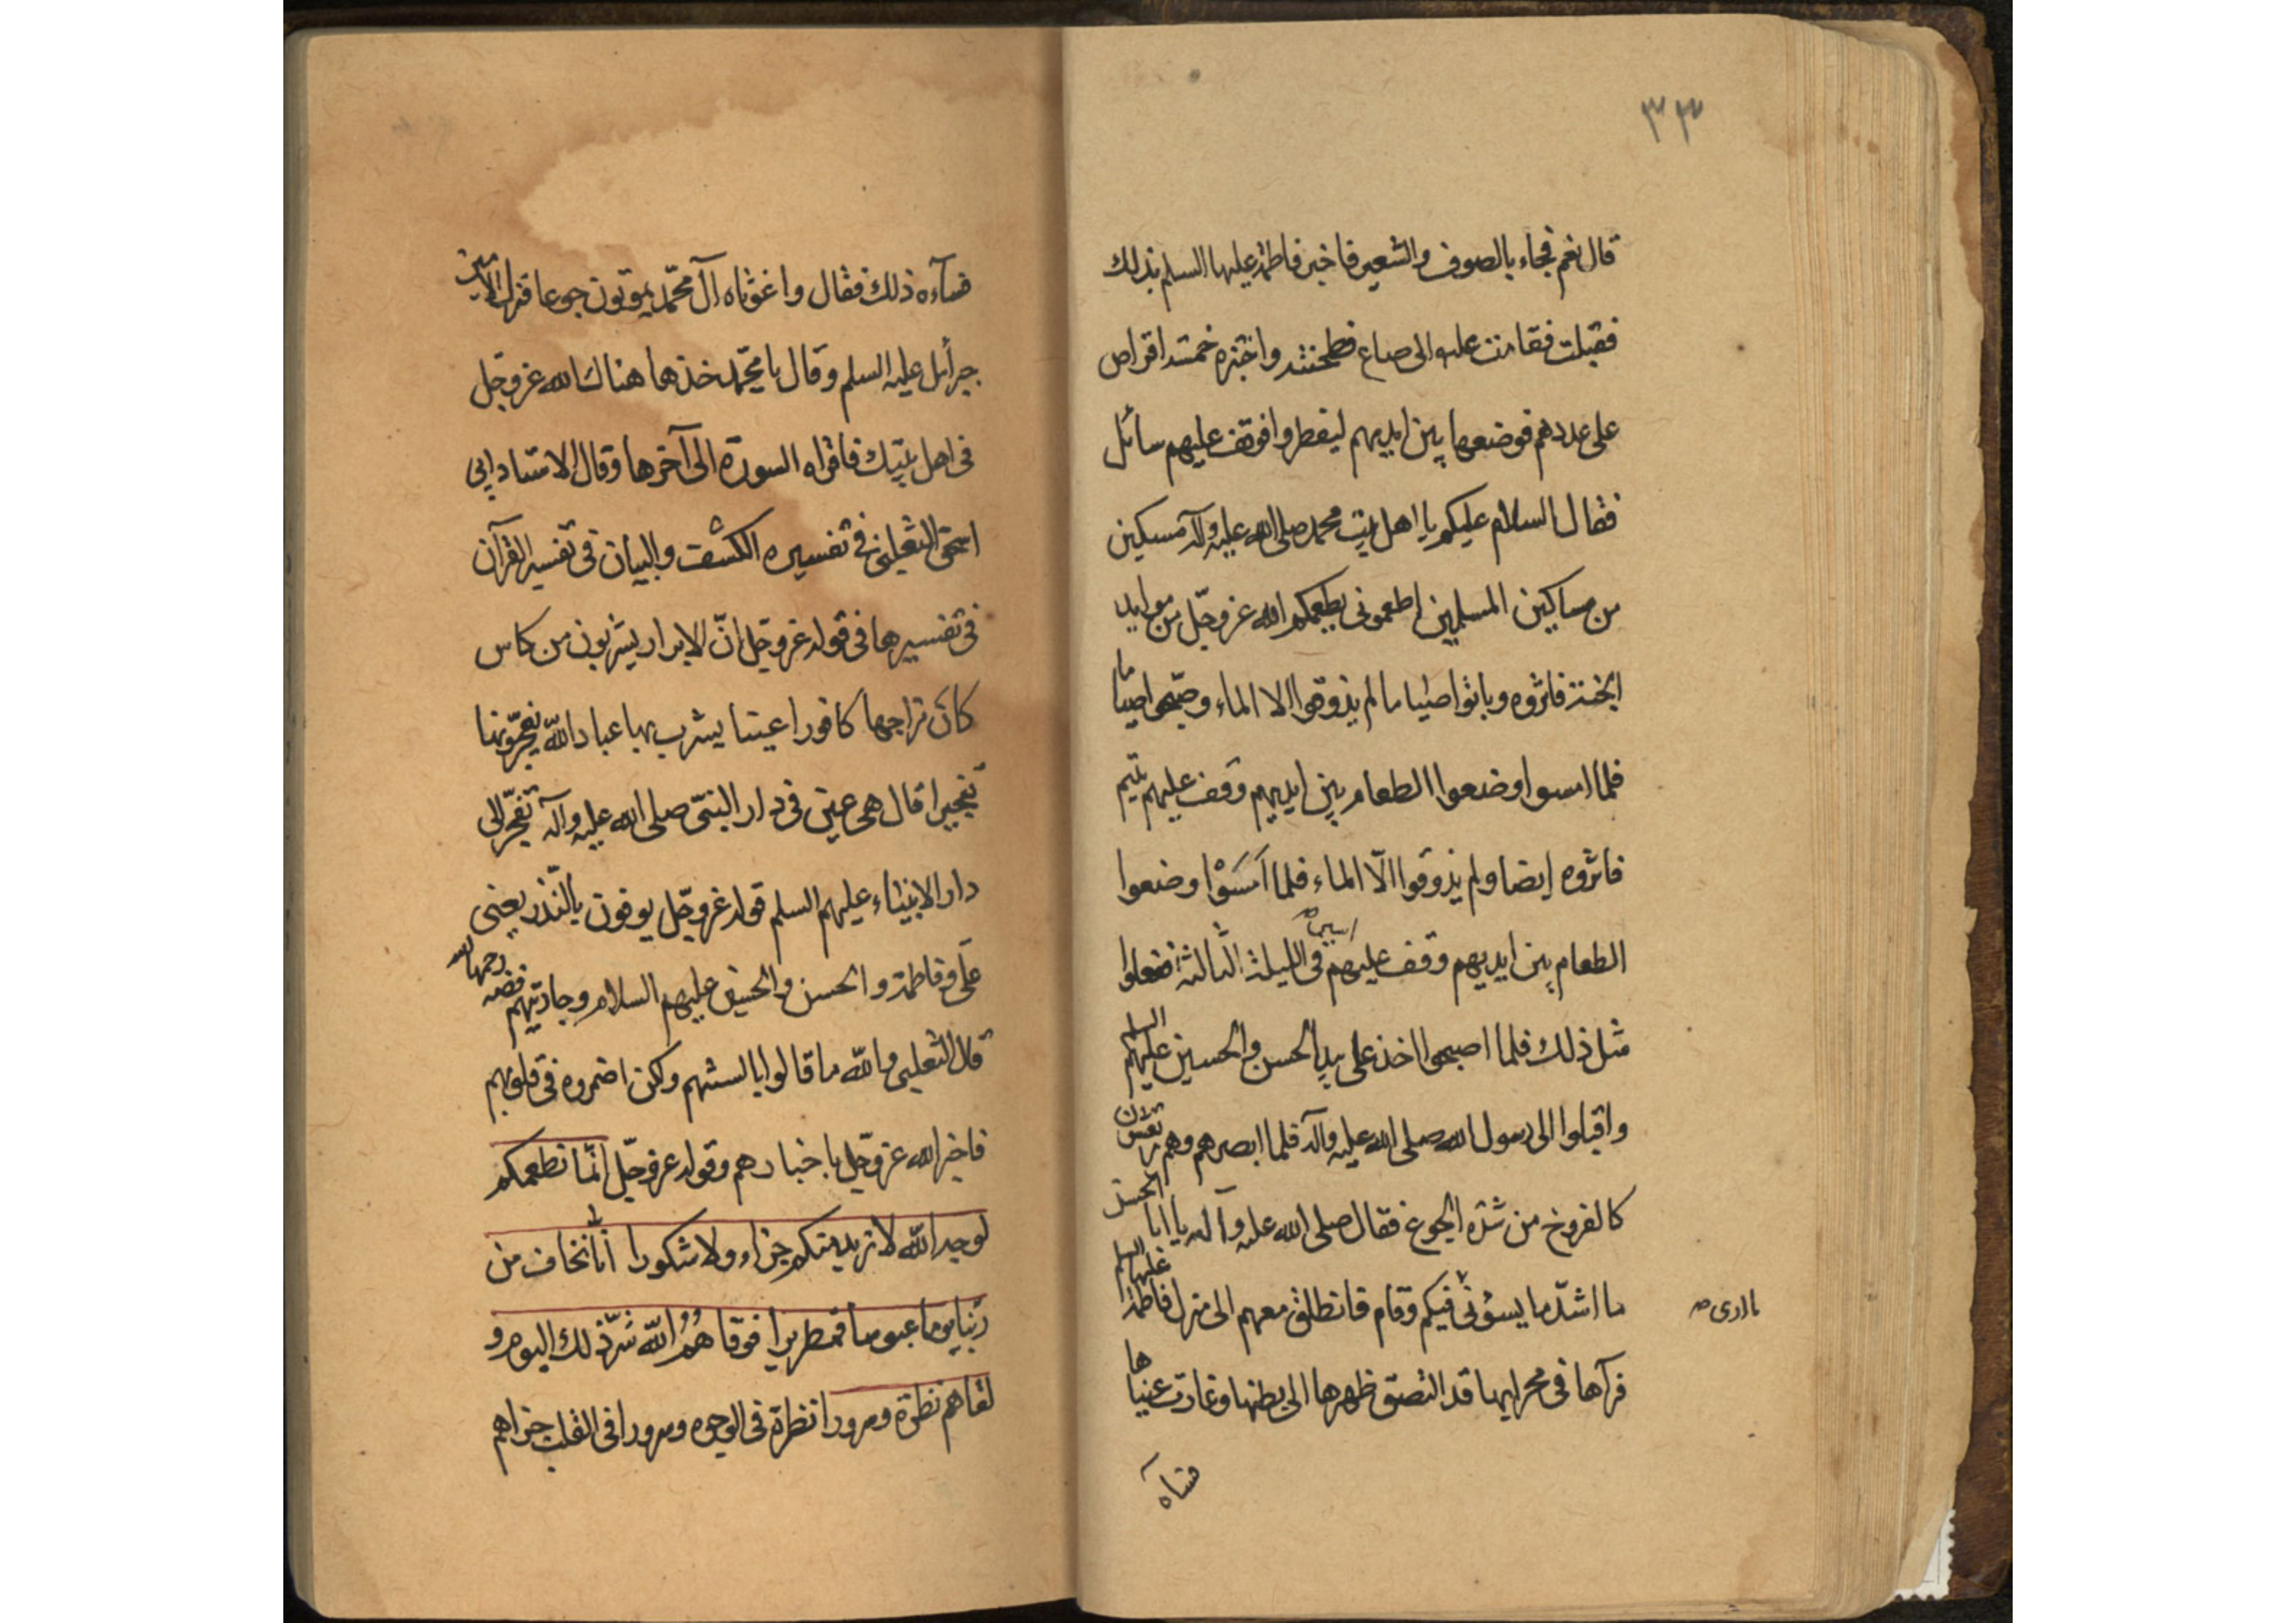 ٣٣
قال نعم فجاء بالصوف والشعير فاخبر فاطمة عليها السلم بذلك
فقبلت فقامت عليه الى صاع فطحنته واختبزه خمسة اقراص
على عددهم فوضعها بين ايديهم ليفطروا فوقف عليهم سائل
فقال السلام عليكم يا اهل بيت محمد صلى الله عليه وآله مسكين
من مساكين المسلمين اطعمونى يطعمكم الله عز وجلّ من موايد
الجنة فاثروه وباتوا صياما لم يذوقوا الا الماء وصبّحوا صياما
فلما امسوا وضعوا الطعام بين ايديهم وقف عليهم يتيم
فاثروه ايضا ولم يذوقوا الّا الماء فلما امسَوْا وضعوا
الطعام بين ايديهم وقف عليهم اسير صح فى الليلة الثالثة ففعلوا
مثل ذلك فلما اصبحوا اخذ على بيد الحسن والحسين عليهم السلم
واقبلوا الى رسول الله صلى الله عليه وآله فلما ابصرهم وهم يرتعشون
كالفروخ من شدّه الجوع فقال صلى الله عليه وآله يا ابا الحسن
ما اشدّ ما يسؤنى فيكم وقام فانطلق معهم الى منزل فاطمة عليها السلم
ما ارى صح
فرآها فى محرابها قد التصق ظهرها الى بطنها وغارت عيناها
فسآه
فسآءه ذلك فقال واغوثاه آل محمّد يموتون جوعا فنزل الامين
جبرائيل عليه السلم وقال يا محمّد خذها هناك الله عز وجل
فى اهل بيتك فاقراه السورة الى آخرها وقال الاستاد ابى
اسحق الثعلبى فى تفسيره الكشف والبيان فى تفسير القرآن
فى تفسيرها فى قوله عز وجل انّ الابرار يشربون من كاس
كان مزاجها كافورا عينا يشرب بها عباد اللّه يفجّرونها
تفجيرا قال هى عين فى دار النبىّ صلى الله عليه وآله تفجّر الى
دار الانبياء عليهم السلم قوله عز وجلّ يوفون بالنّذر يعنى
على وفاطمة والحسن والحسين عليهم السلام وجاريتهم فضه رحمها الله
قال الثعلبى واللّه ما قالوا بالسنتهم ولكن اضمروه فى قلوبهم
فاخبر الله عز وجل باخبارهم وقوله عز وجلّ انّما نطعمكم
لوجه اللّه لا نريد منكم جزاء ولا شكورا انّا نخاف من
ربّنا يوما عبوسا قمطريرا فوقاهُمُ اللّه شرّ ذلك اليوم و
لقاهم نظرة وسرورا نظرة فى الوجوه وسرورا فى القلب جزاهم